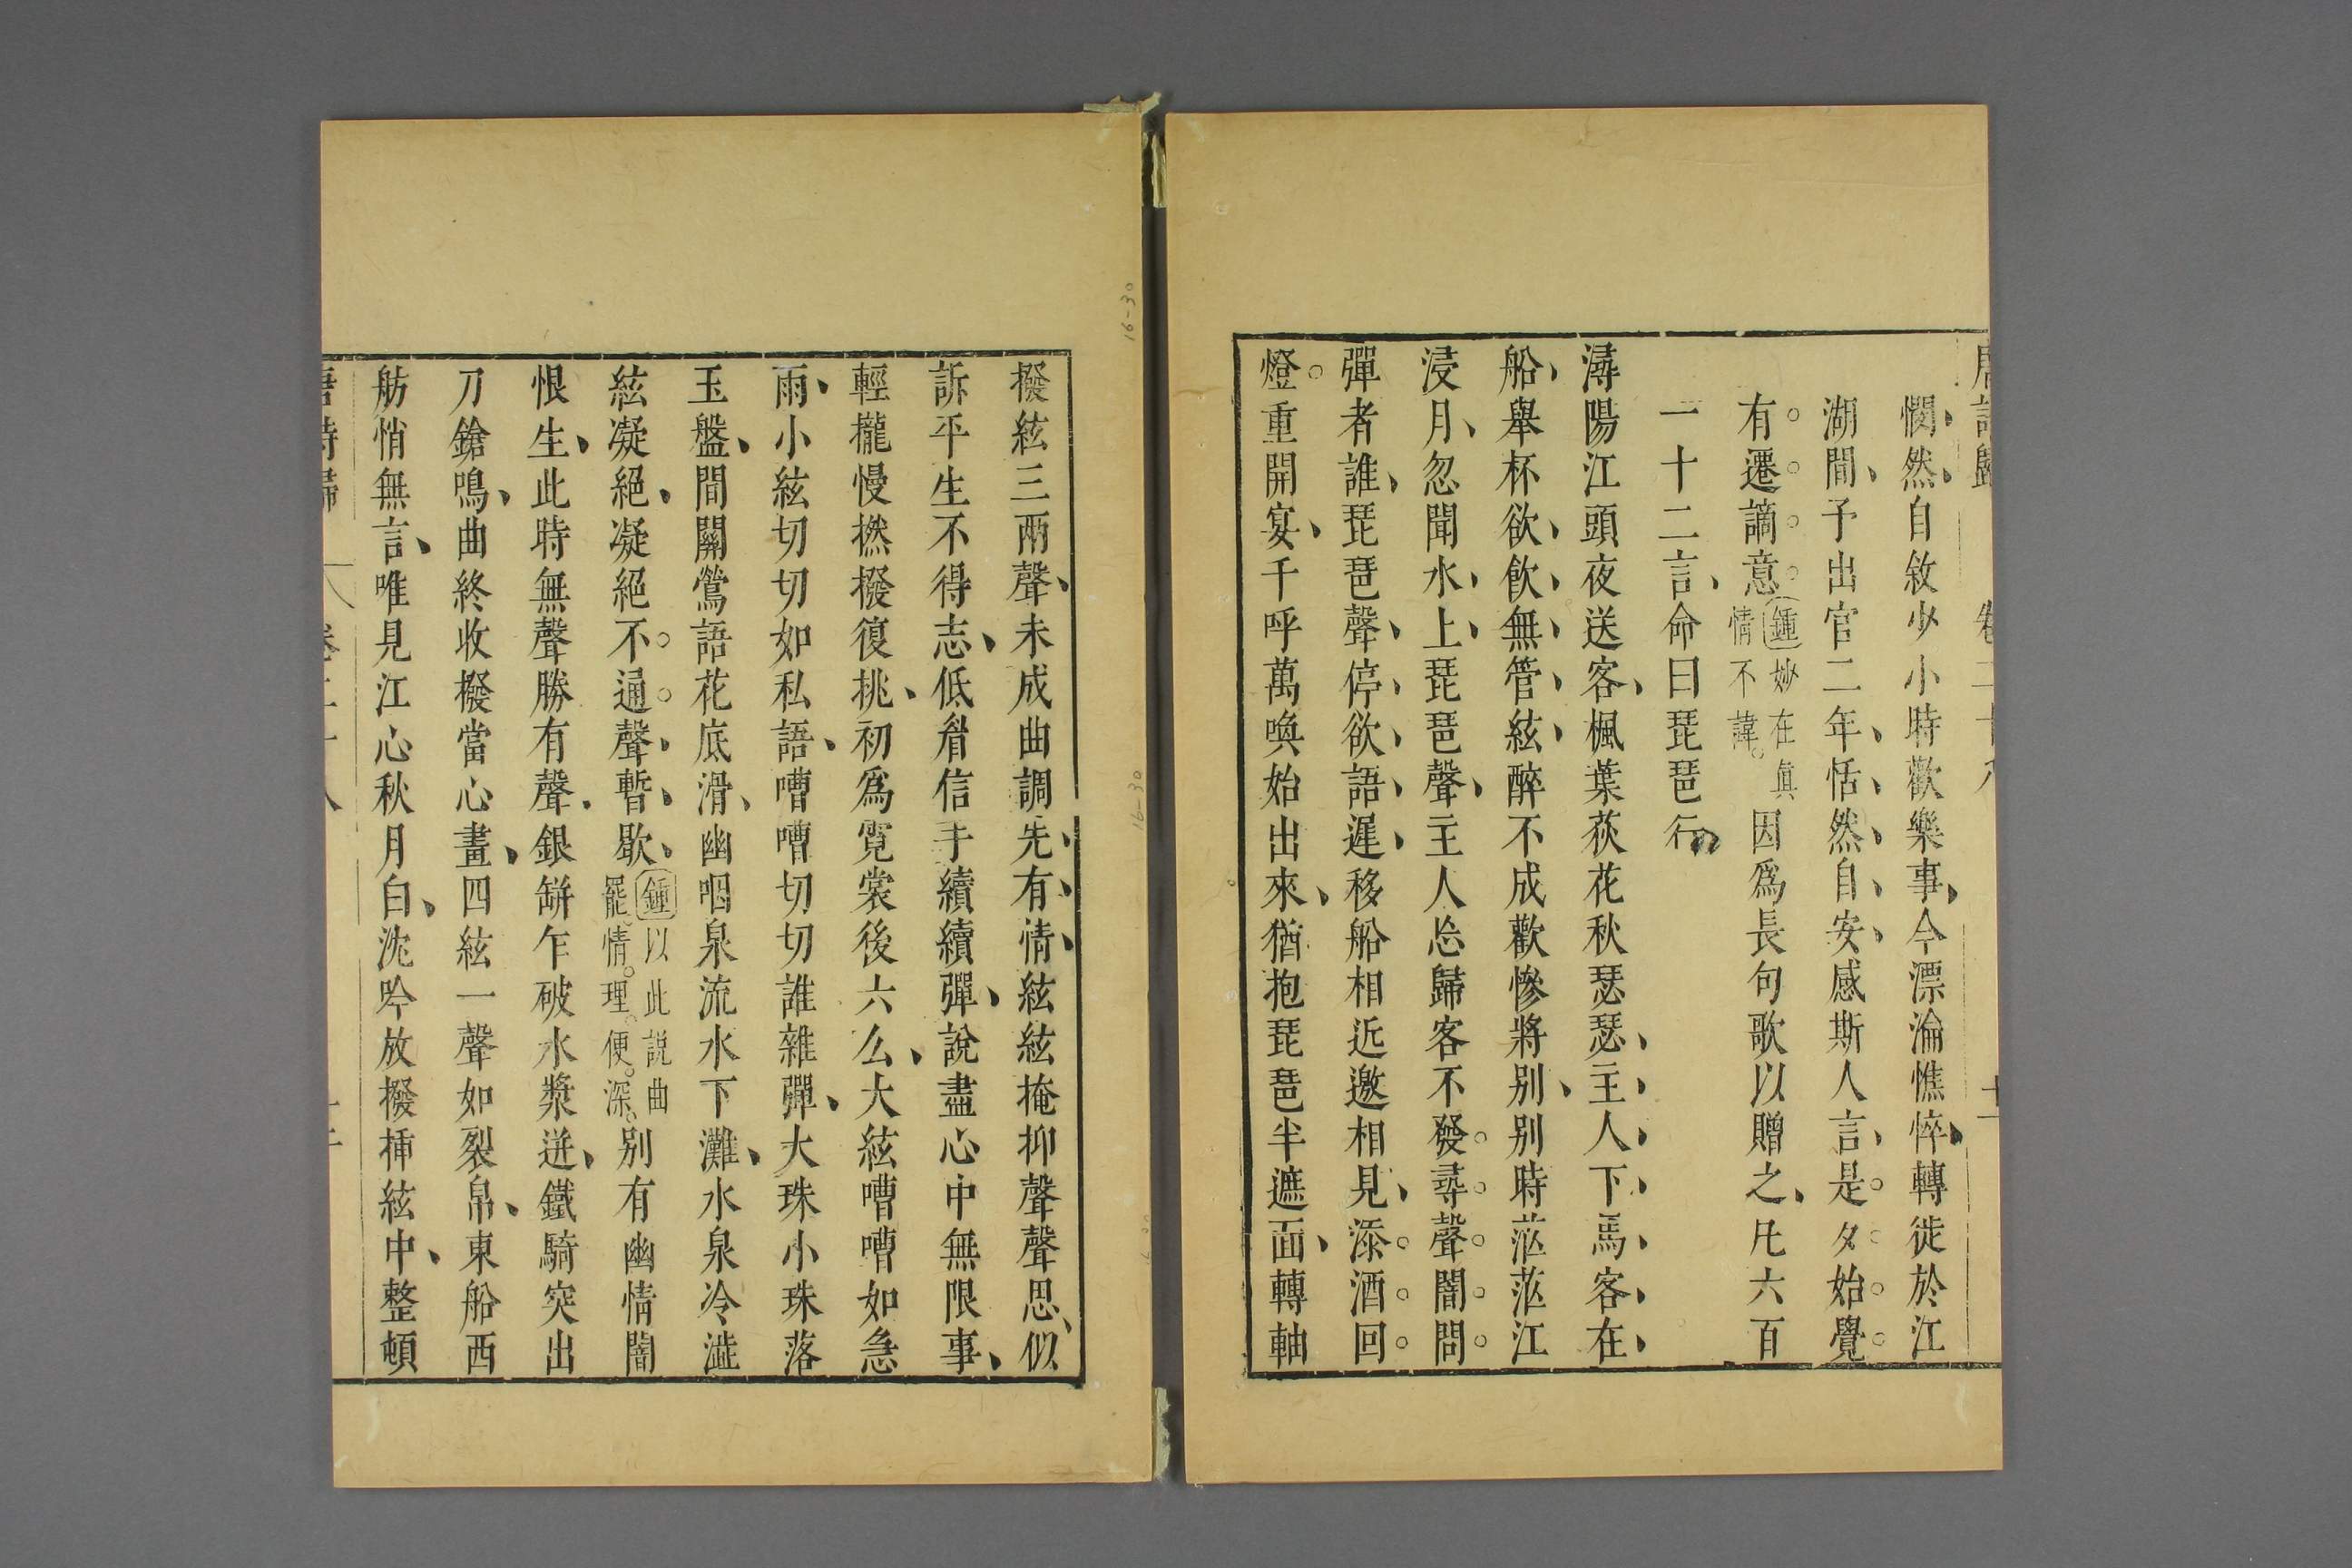 憫然自敘少小時歡樂事、今漂淪憔悴、轉徙於江
湖間、予出官二年、恬然自安、感斯人言、是夕始覺
有遷謫意。鍾妙在眞情不諱。因爲長句歌以贈之、凡六百
一十二言、命曰琵琶行
潯陽江頭夜送客、楓葉荻花秋瑟瑟、主人下馬客在
船、舉杯欲飲無管絃、醉不成歡慘將别、别時茫茫江
浸月、忽聞水上琵琶聲、主人忘歸客不發。尋聲闇問
彈者誰、琵琶聲停欲語遲、移船相近邀相見、添酒回
燈。重開宴、千呼萬喚始出來、猶抱琵琶半遮面、轉軸
撥絃三兩聲、未成曲調先有情、絃絃掩抑聲聲思、似
訴平生不得志、低眉信手續續彈、說盡心中無限事、
輕攏慢撚撥復挑、初爲霓裳後六么、大絃嘈嘈如急
雨、小絃切切如私語、嘈嘈切切誰雜彈、大珠小珠落
玉盤、間關鶯語花底滑、幽咽泉流水下灘、水泉冷澁
絃凝絕、凝絕不通聲暫歇、鍾以此説曲罷情。理。便。深。别有幽情闇
恨生、此時無聲勝有聲、銀缾乍破水漿迸、鐵騎突出
刀鎗鳴、曲終收撥當心畫、四絃一聲如裂帛、東船西
舫悄無言、唯見江心秋月白、沈吟放撥揷絃中、整頓